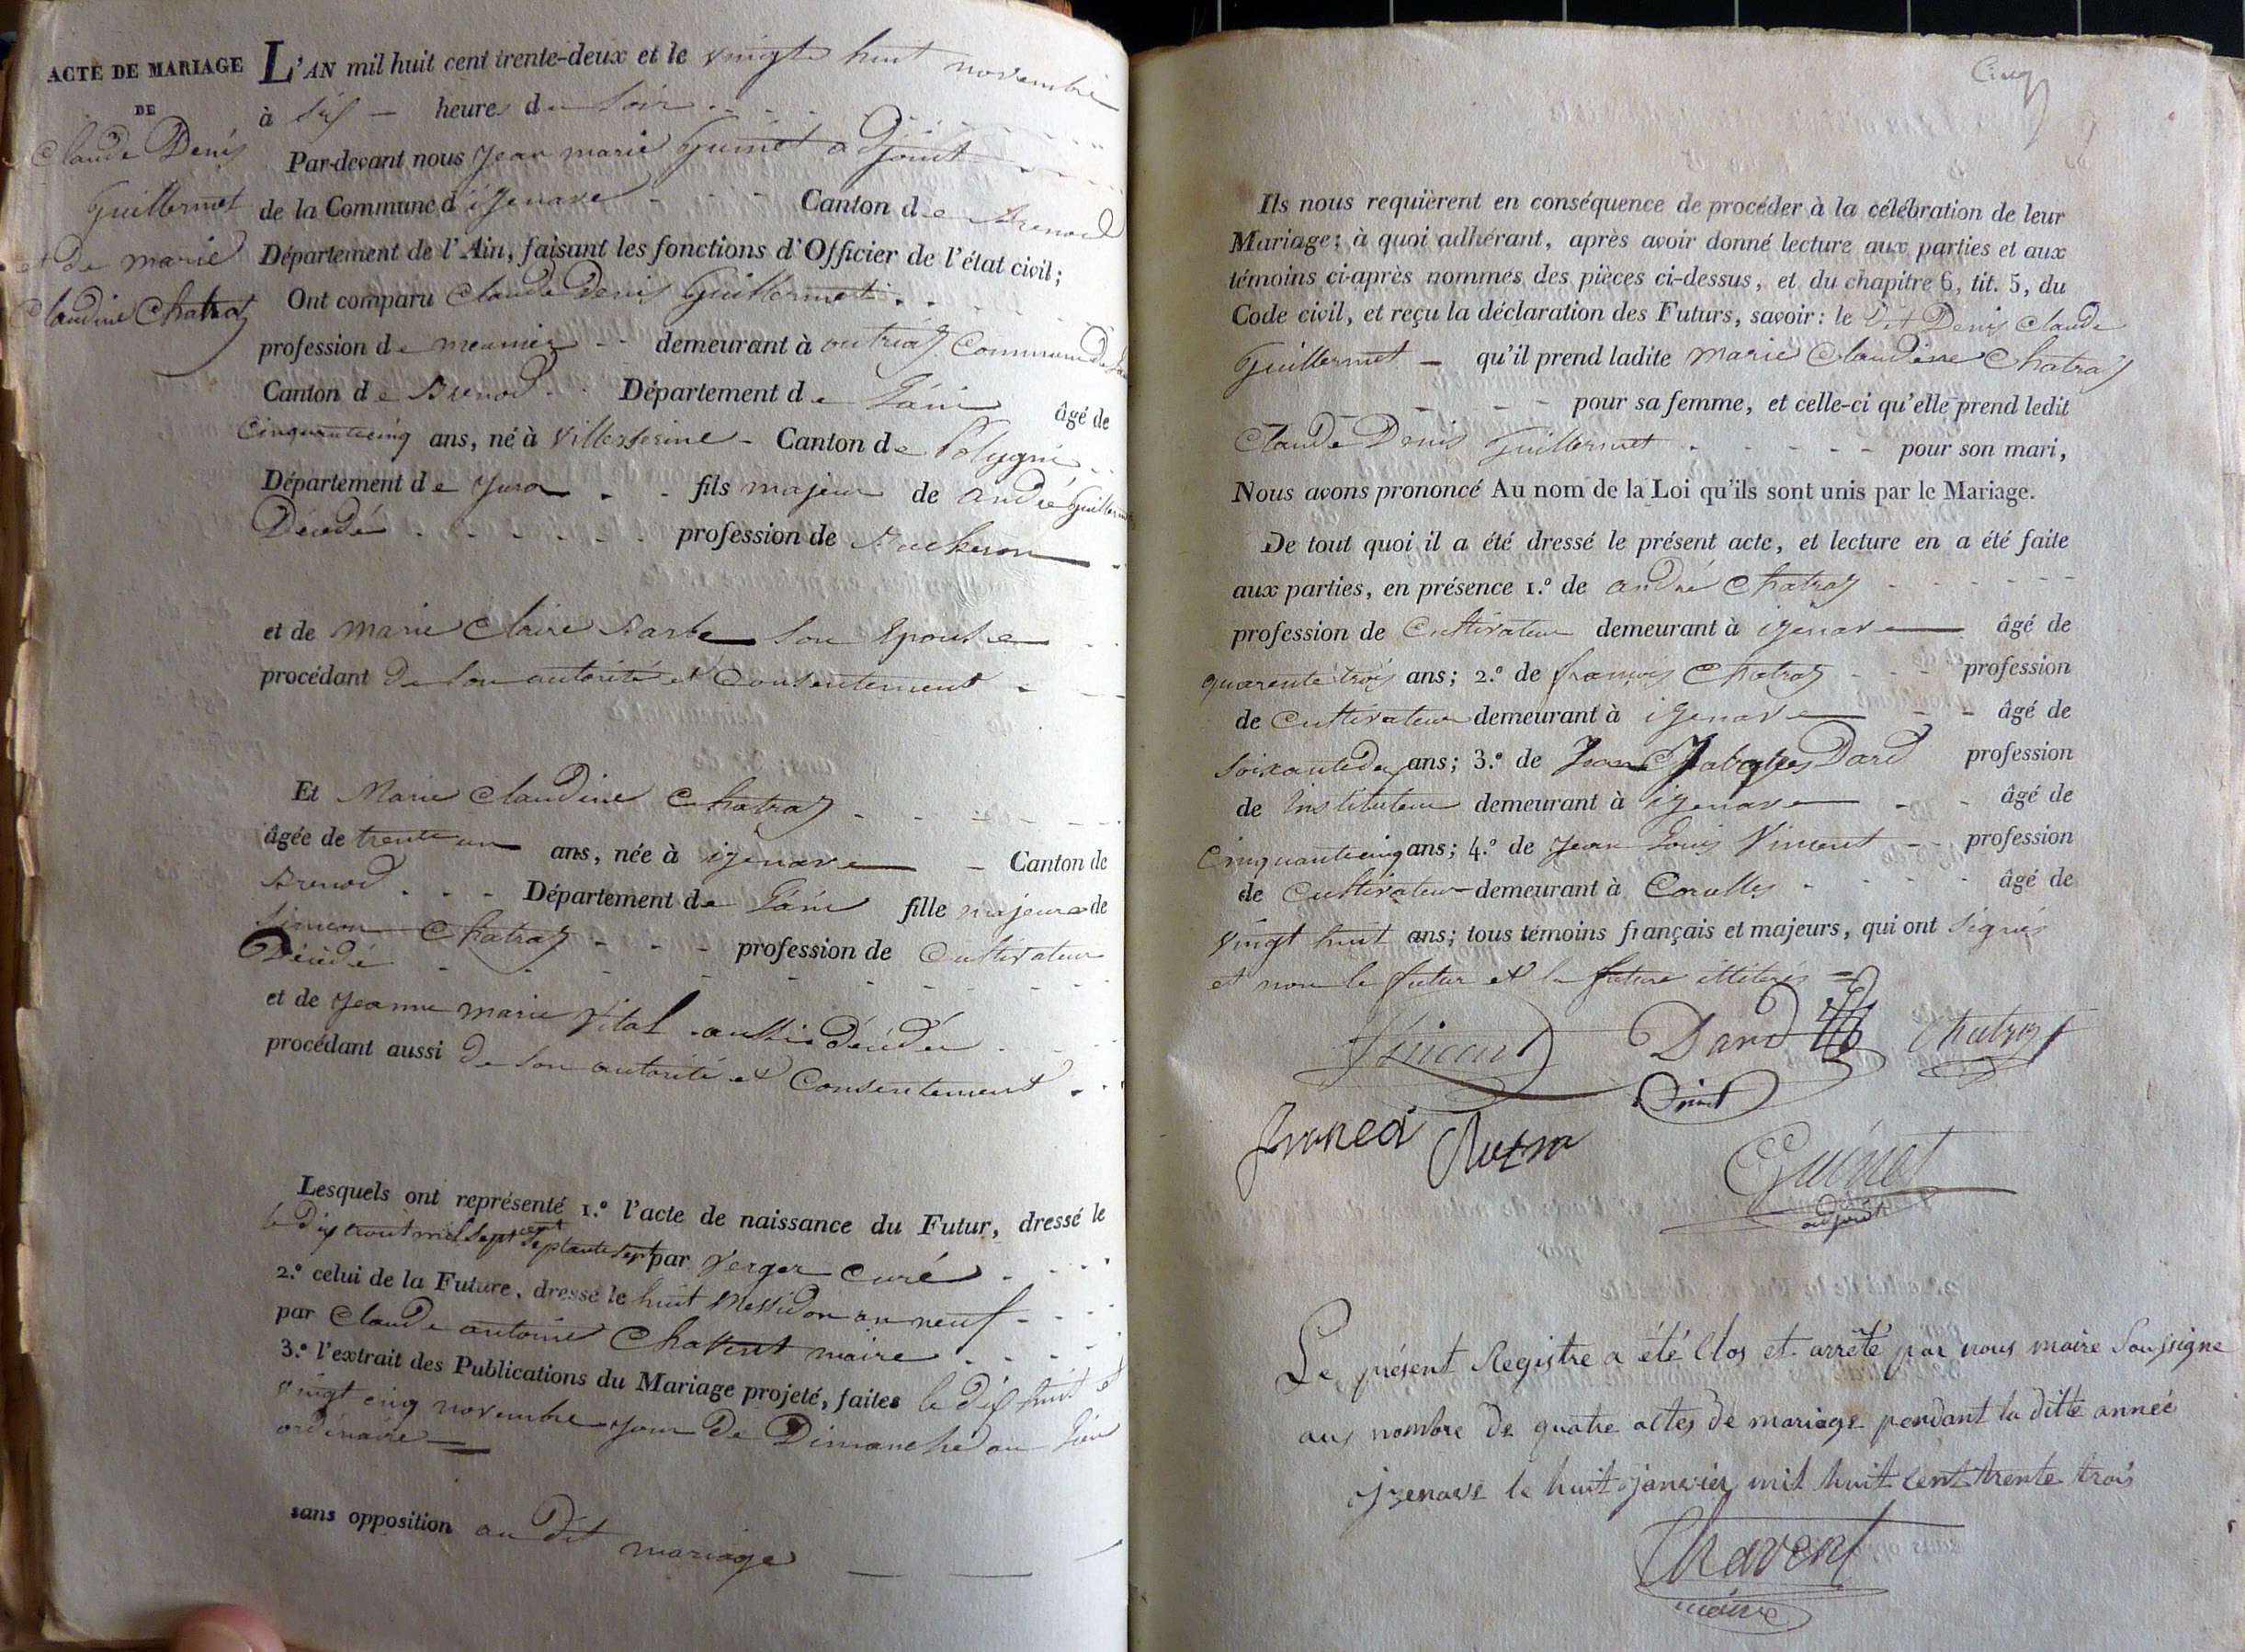 ACTE DE MARIAGE
DE
Claude Denis
Guillermet
et de marie
Claudine Chatraz
L'AN mil huit cent trente-deux et le vingt huit novembre
à six heures du soir
Par-devant nous Jean marie Guinet adjoint
de la Commune d'izenave Canton de Brenod
Département de l'Ain, faisant les fonctions d'Officier de l'état civil;
Ont comparu Claude Denis Guillermet
profession de meunier demeurant à outriaz Commune de
Canton de Brenod Département de l'ain âgé de
Cinquantecinq ans, né à Villerserine Canton de Polygni
Département de Jura fils majeur de andré Guillermet
Décédé profession de
et de marie Claire Barbe son Epouse
procédant de son autorité et Consentement
Et Marie Claudine Chatraz
âgée de trente un ans, née à izenave Canton de
Brenod Département de l'ain fille majeure de
Simeon Chatraz profession de Cultivateur
Décédé
et de Jeanne marie Vital aussi décédée
procédant aussi de son autorité et Consentement
Lesquels ont représenté 1.° l'acte de naissance du Futur, dressé le
le dix aout mil sept cent septante sept par Verger curé
2.° celui de la Future, dressé le huit Messidor an neuf
par Claude antoine Chavent maire
3.° l'extrait des Publications du Mariage projeté, faites le dix huit et
vingt cinq novembre jour de Dimanche au lieu
ordinaire
sans opposition au dit mariage
Cinq
Ils nous requièrent en conséquence de procéder à la célébration de leur
Mariage; à quoi adhérant, après avoir donné lecture aux parties et aux
témoins ci-après nommés des pièces ci-dessus, et du chapitre 6, tit. 5, du
Code civil, et reçu la déclaration des Futurs, savoir: le dit Denis Claude
Guillermet qu'il prend ladite marie Claudine Chatraz
pour sa femme, et celle-ci qu'elle prend ledit
Claude Denis Guillermet pour son mari,
Nous avons prononcé Au nom de la Loi qu'ils sont unis par le Mariage.
De tout quoi il a été dressé le présent acte, et lecture en a été faite
aux parties, en présence 1.° de andré Chatraz
profession de Cultivateur demeurant à izenave âgé de
quarente trois ans; 2.° de françois Chatraz profession
de Cultivateur demeurant à izenave âgé de
soixantedeux ans; 3.° de Jean Jacques Dard profession
de instituteur demeurant à izenave âgé de
Cinquantecinq ans; 4.° de Jean Louis Vincent profession
de Cultivateur demeurant à Corcelles âgé de
vingt huit ans; tous témoins français et majeurs, qui ont signés
et non le futur et la future illitérés
Vincent Dard Chatraz
Guinet
adjoint
Le présent Registre a été Clos et arrêté par nous maire Soussigne
aus nombre de quatre actes de mariage pendant la ditte année
izenave le huit janvier mil huit cent trente trois
Chavent
maire